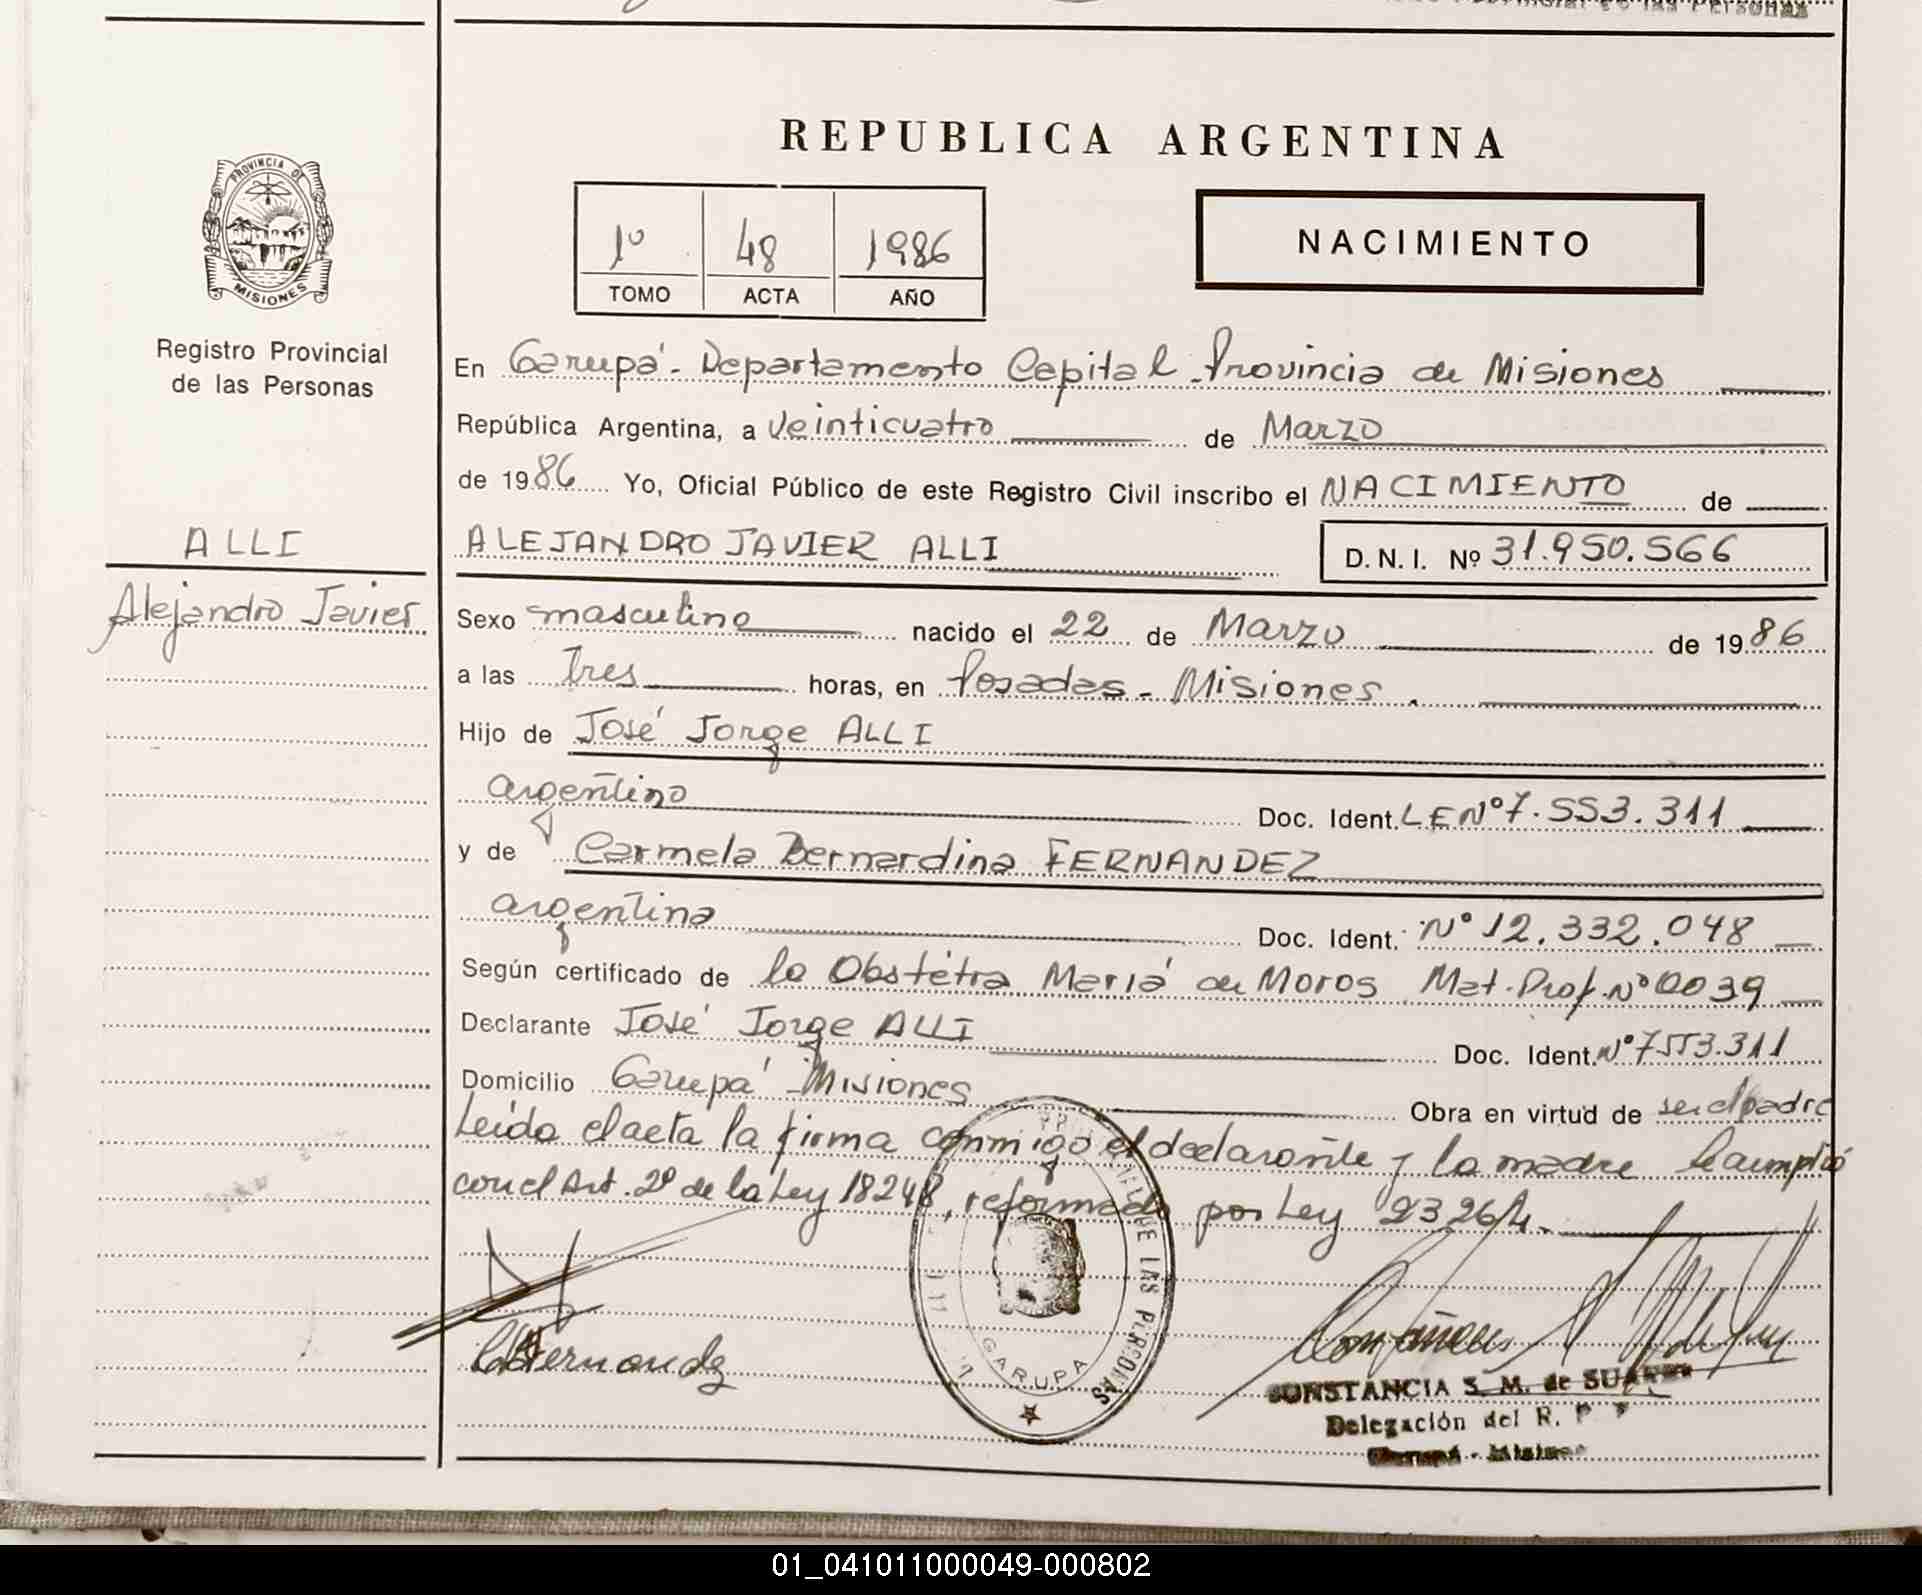 REPUBLICA ARGENTINA
PROVINCIA DE
MISIONES
1º 48 1986
TOMO ACTA AÑO
NACIMIENTO
Registro Provincial
de las Personas
En Garupá - Departamento Capital - Provincia de Misiones
República Argentina, a Veinticuatro de Marzo
de 1986 Yo, Oficial Público de este Registro Civil inscribo el NACIMIENTO de
ALLI
Alejandro Javier
ALEJANDRO JAVIER ALLI D.N.I. Nº 31.950.566
Sexo masculino nacido el 22 de Marzo de 1986
a las Tres horas, en Posadas - Misiones.
Hijo de José Jorge ALLI
argentino Doc. Ident. LE Nº 7.553.311
y de Carmela Bernardina FERNANDEZ
argentina Doc. Ident. Nº 12.332.048
Según certificado de la Obstétra Mariá de Moros Mat. Prof. Nº 0039
Declarante José Jorge ALLI Doc. Ident. Nº 7553.311
Domicilio Garupá - Misiones Obra en virtud de ser el padre
Leída el acta la firma conmigo el declarante y la madre. Se cumplió
con el Art. 2º de la Ley 18248, reformado por Ley 23264.-
DE LAS PERSONAS
GARUPA
CBFernandez
CONSTANCIA S. M. de SUAREZ
Delegación del R. P.
Garupá - Misiones
01_041011000049-000802